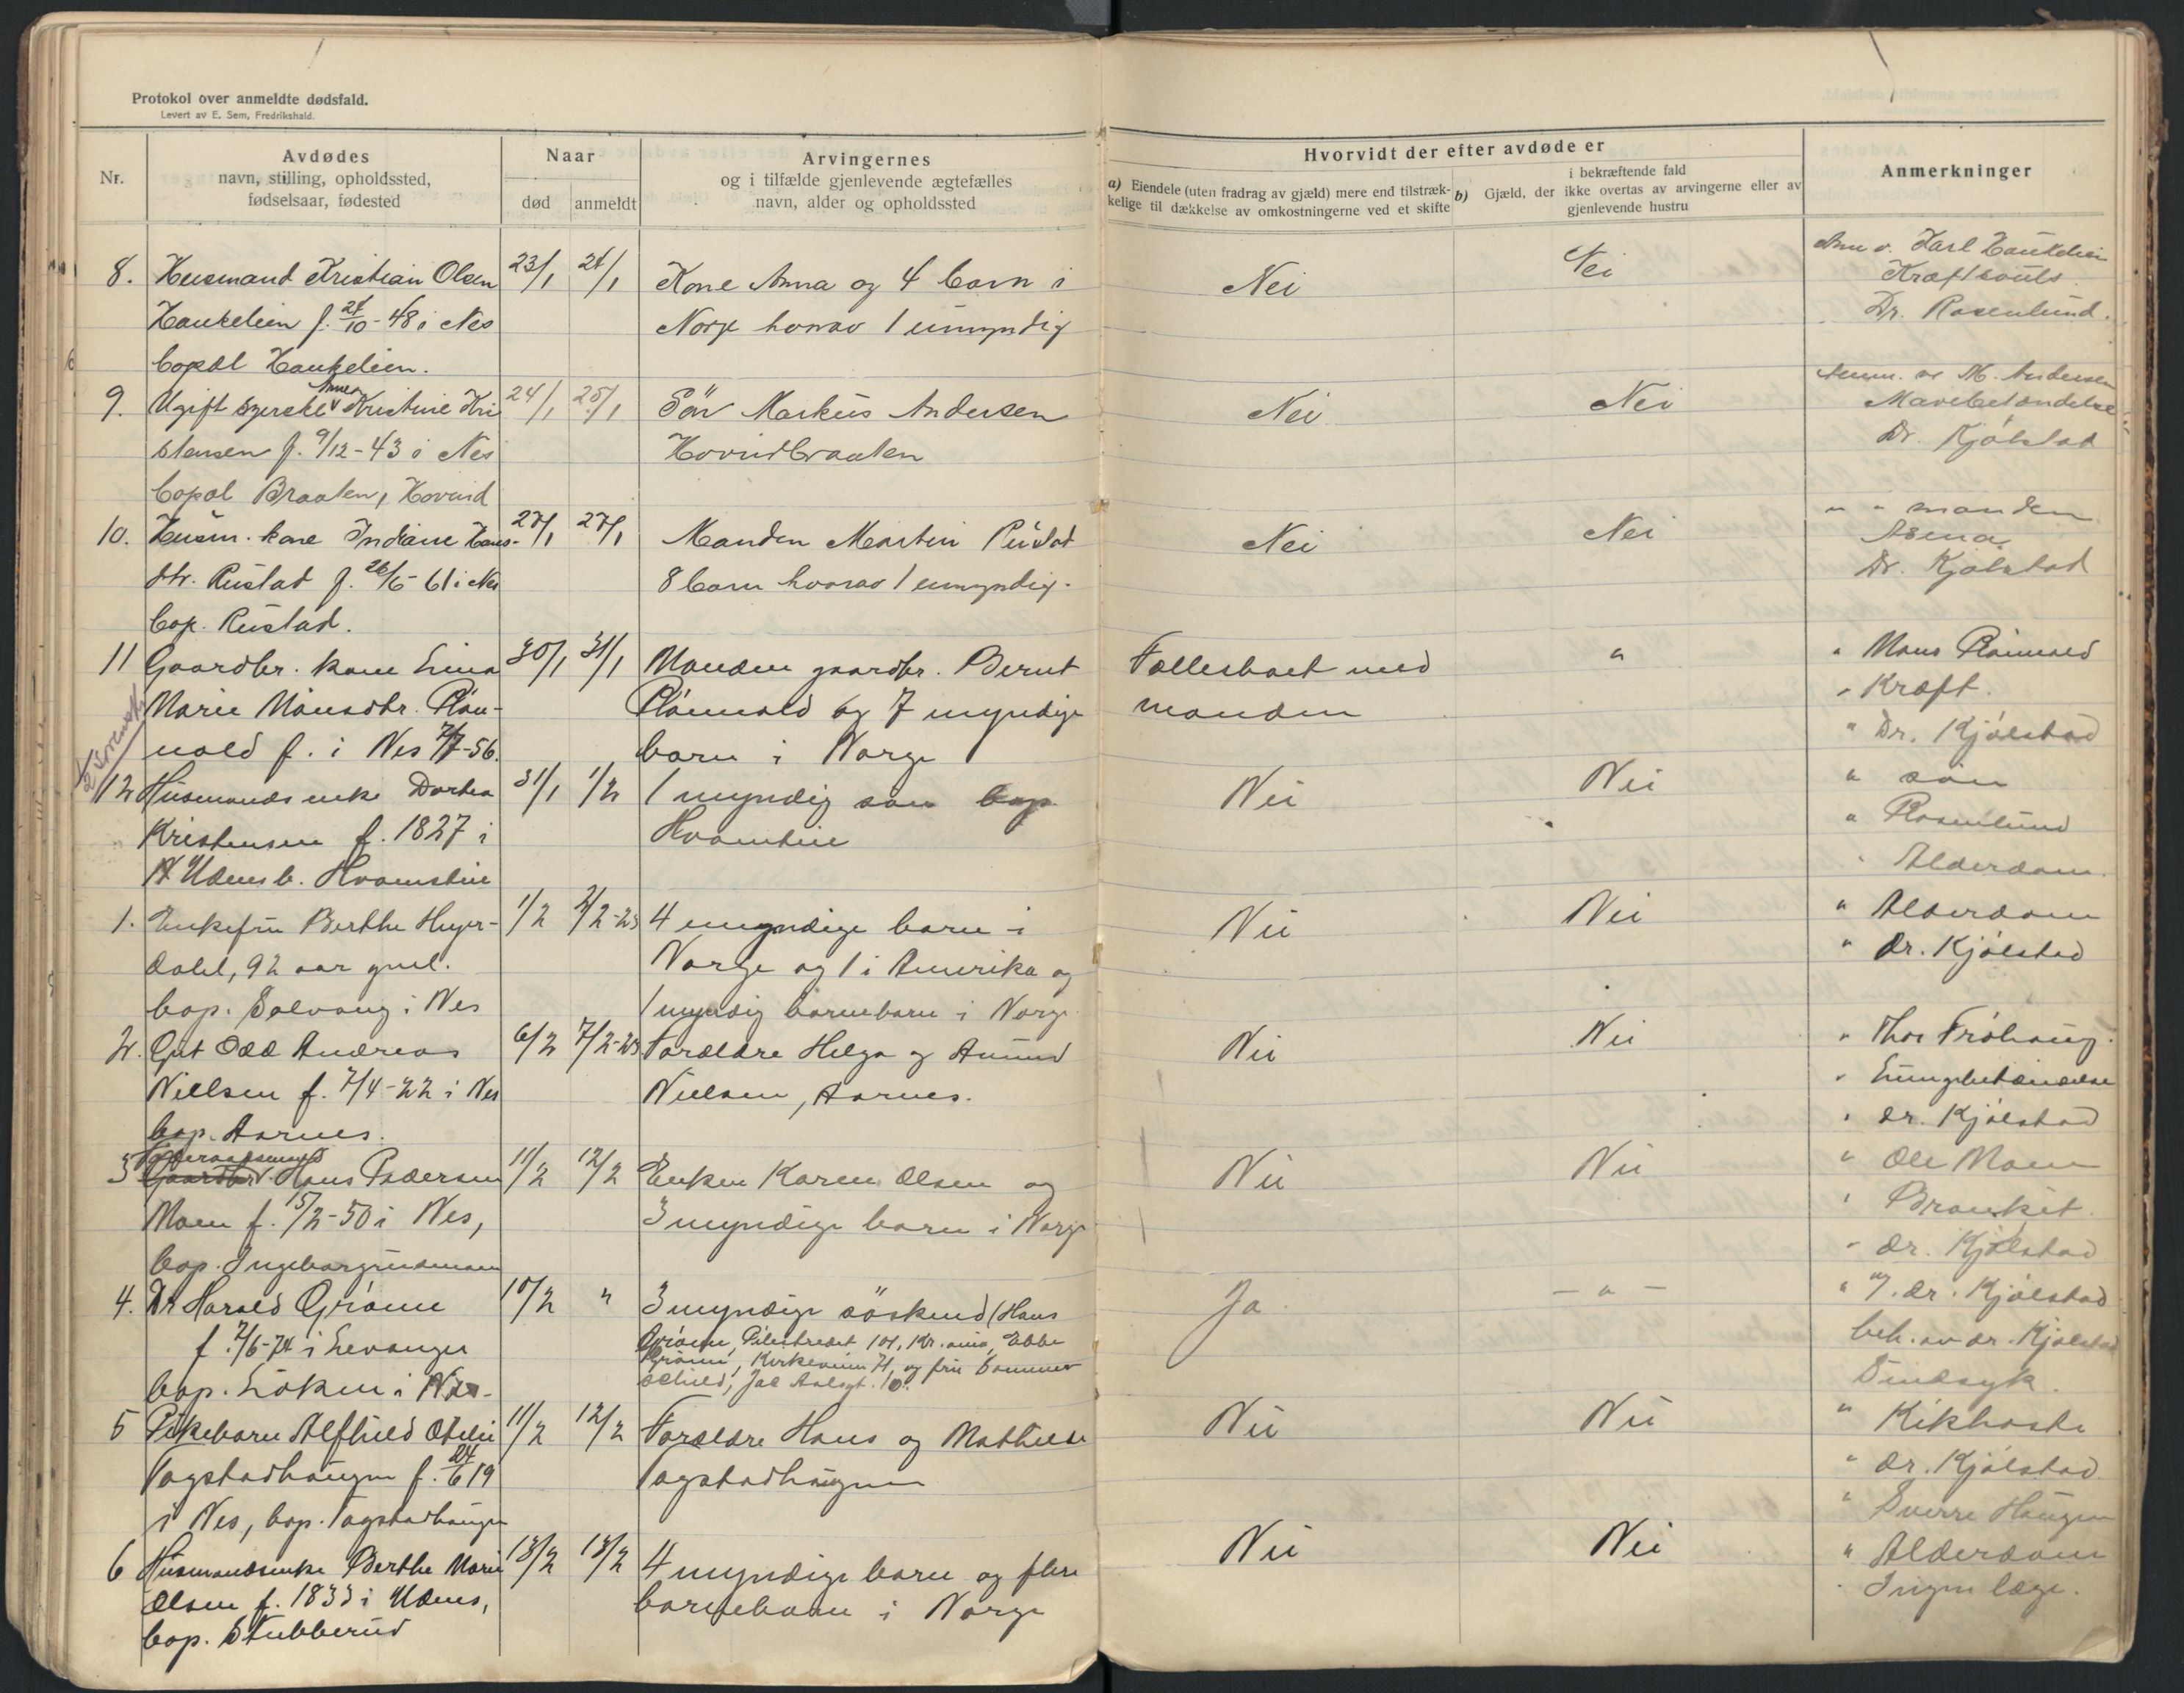 Protokol over anmeldte dødsfald.
Levert av E. Sem, Fredrikshald.
Nr.
Avdødes
navn, stilling, opholdssted,
fødselsaar, fødested
Naar
død
anmeldt
Arvingernes
og i tilfælde gjenlevende ægtefælles
navn, alder og opholdssted
Hvorvidt der efter avdøde er
a) Eiendele (uten fradrag av gjæld) mere end tilstræk-
kelige til dækkelse av omkostningerne ved et skifte
i bekræftende fald
b) Gjæld, der ikke overtas av arvingerne eller av
gjenlevende hustru
Anmerkninger
8. Husmand Kristian Olsen
Haukelien f. 21/10-48 i Nes
bopæl Haukelien.
23/1 24/1
Kone Anna og 4 barn i
Norge hvorav 1 umyndig
Nei
Nei
Anm v. Karl Haukelien
Kræft
Dr. Rosenlund.
9. Ugift syerske Anne Kristine Kri
stensen f. 9/12-43 i Nes
bopæl Braaten, Hovind
24/1 25/1
Søn Markus Andersen
Hovindbraaten
Nei
Nei
Anm. av M. Andersen
Mavebetændelse
Dr. Kjølstad
10. Husm. kone Indiane Hans-
dtr. Rustad f. 26/5-61 i Nes
bop. Rustad.
27/1 27/1
Manden Martin Rustad
8 barn hvorav 1 umyndig.
Nei
Nei
" " manden
Astma
Dr. Kjølstad
11 Gaardbr. kone Lina
Marie Mønsdtr. Røn-
nold f. i Nes 7/7-56.
30/1 31/1
Manden gaardbr. Bernt
Rønnold og 7 myndige
barn i Norge
Fællesboet med
manden
"
" Mons Rønnold
" Kræft.
" Dr. Kjølstad
12 Husmandsenke Dortea
Kristensen f. 1827 i
N Udenes b. Hvamstin
31/1 1/2
1 myndig søn bop.
Hvamstin
Nei
Nei
" søn
" Rosenlund
" Alderdom.
1. Enkefru Berthe Heyer-
dahl, 92 aar gml.
bop. Solvang i Nes
1/2 2/2-23
4 myndige barn i
Norge og 1 i Amerika og
1 myndig barnebarn i Norge
Nei
Nei
" Alderdom
" Dr. Kjølstad
2. Gut Odd Andreas
Nielsen f. 7/4-22 i Nes
bop. Aarnes.
6/2 7/2-23
Forældre Helga og Amund
Nielsen, Aarnes.
Nei
Nei
" Thor Frøhaug.
" Lungebetændelse
" Dr. Kjølstad
3 Gaardbr. Hans Pedersen
Moen f. 15/2-50 i Nes,
bop. Ingeborgrudmoen
11/2 12/2
Enken Karen Olsen og
3 myndige barn i Norge
Nei
Nei
" Ole Moen
" Bronkit.
" Dr. Kjølstad
4. Dr Harald Grøme
f. 7/6-74 i Levanger
bop. Løken i Nes.
10/2 "
3 myndige søskend (Hans
Grøem, Pilestrædet 101, Kr.ania, Ebbe
Kirkeveien 71, og fru
Ja
- " -
" Dr. Kjølstad
beh. av dr. Kjølstad
Sindsyk.
5 Pikebarn Alfhild Otelie
Vogstadhaugen f. 24/6 19
i Nes, bop. Vogstadhaugen
11/2 12/2
Forældre Hans og Mathilde
Vogstadhaugen
Nei
Nei
" Kikhoste
" Dr. Kjølstad
" Sverre Haugen
6 Husmandsenke Berthe Marie
Olsen f. 1833 i Udenes,
bop. Stubberud
13/2 13/2
4 myndige barn og flere
barnebarn i Norge
Nei
Nei
" Alderdom
" Ingen læge.